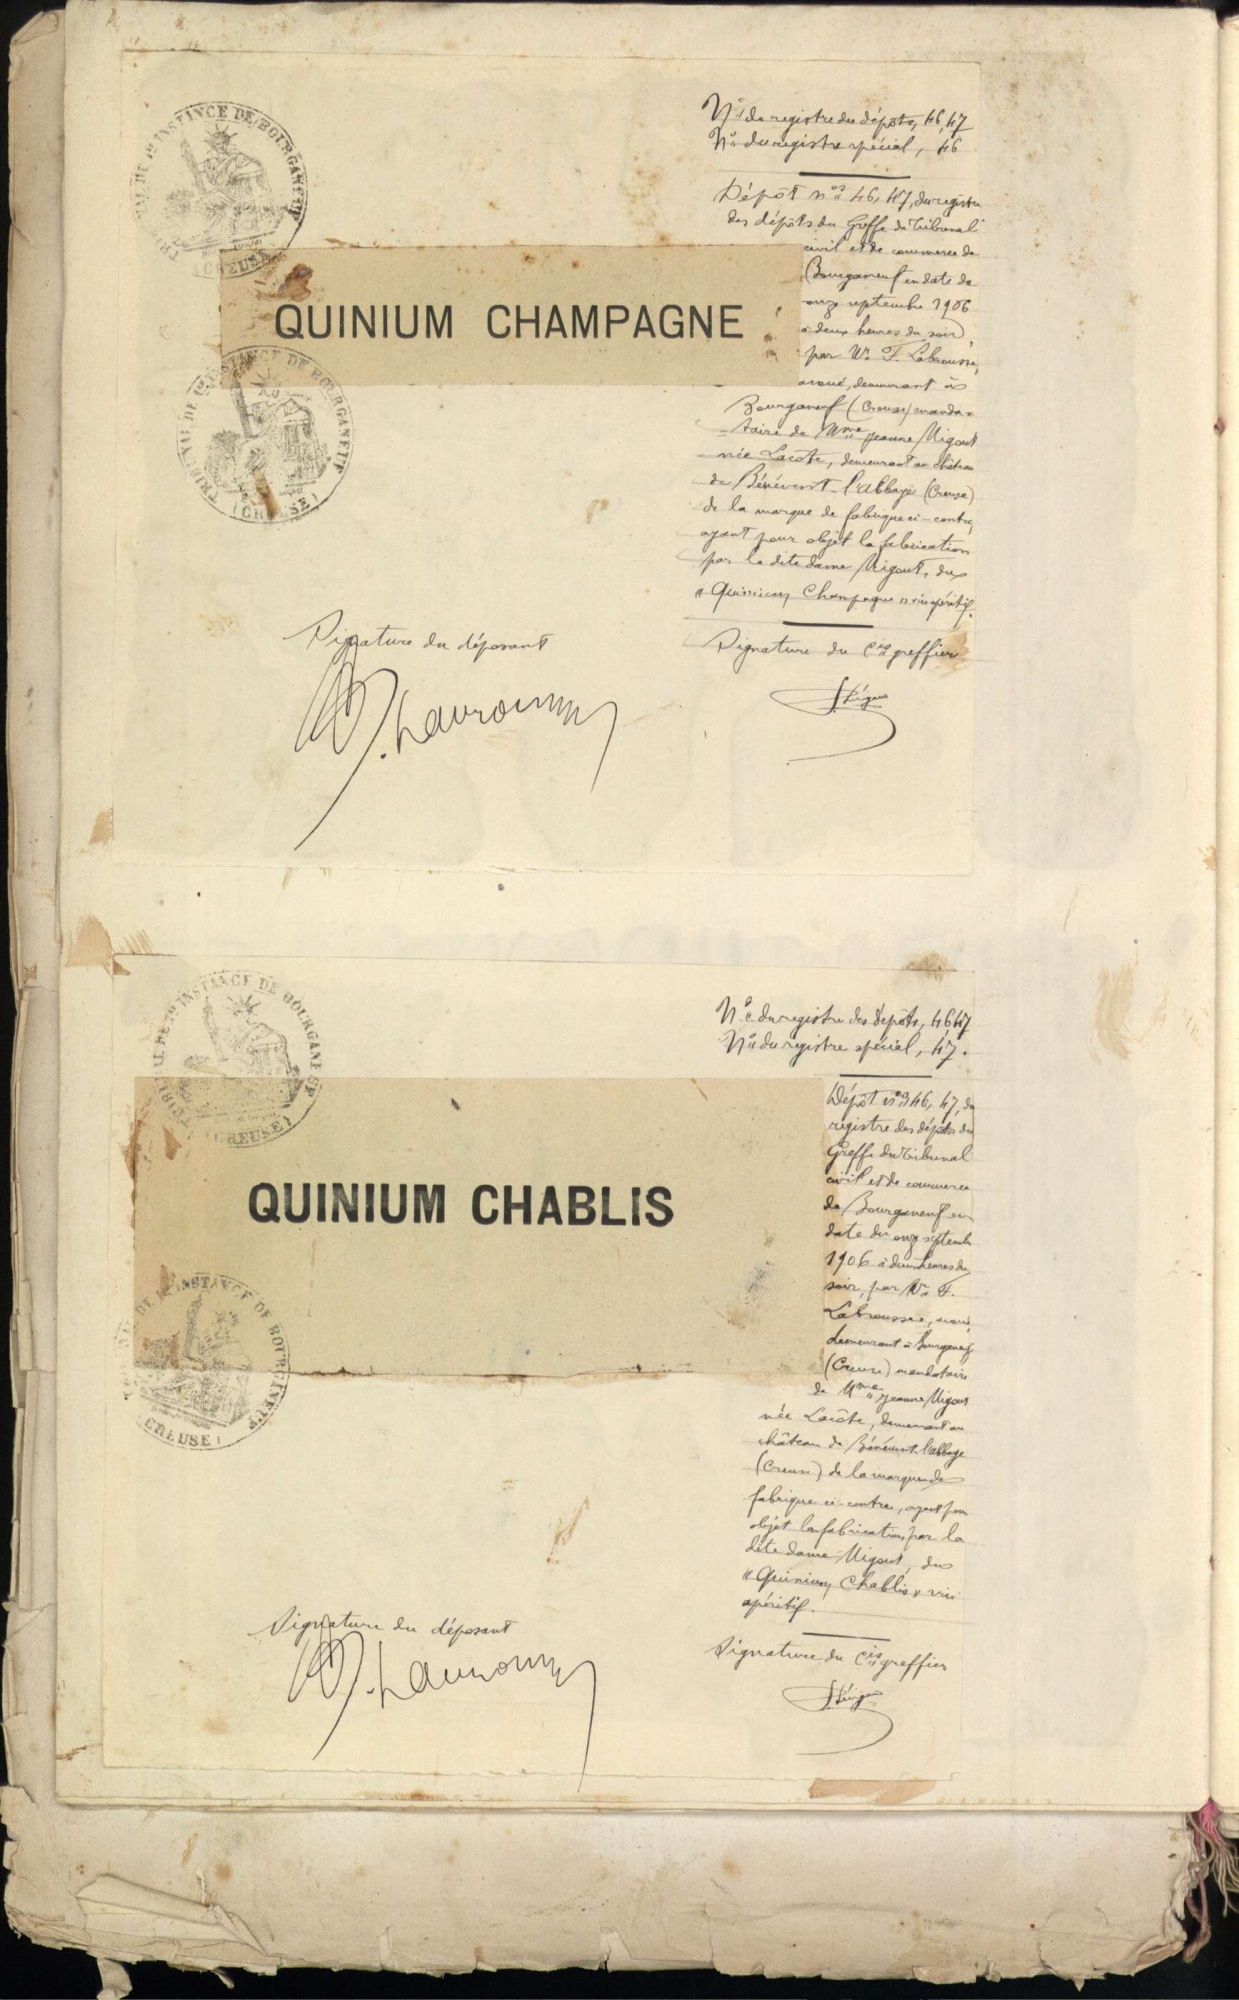 TRIBUNAL DE 1re INSTANCE DE BOURGANEUF
(CREUSE)
QUINIUM CHAMPAGNE
TRIBUNAL DE 1re INSTANCE DE BOURGANEUF
(CREUSE)
Nos du registre des dépôts, 46, 47
No du registre spécial, 46
Dépôt nos 46, 47, du registre
des dépôts du Greffe du Tribunal
civil et de commerce de
Bourganeuf en date du
onze septembre 1906
à deux heures du soir,
par Me F. Labrousse,
avoué, demeurant à
Bourganeuf (Creuse) manda-
taire de Mme Jeanne Migout
née Lacôte, demeurant au château
de Bénévent-l'Abbaye (Creuse)
de la marque de fabrique ci-contre,
ayant pour objet la fabrication
par la dite dame Migout, du
"Quinium Champagne" vin apéritif.
Signature du déposant
F. Labrousse
Signature du cis greffier
TRIBUNAL DE 1re INSTANCE DE BOURGANEUF
(CREUSE)
QUINIUM CHABLIS
TRIBUNAL DE 1re INSTANCE DE BOURGANEUF
(CREUSE)
Nos du registre des dépôts, 46, 47
No du registre spécial, 47.
Dépôt nos 46, 47, du
registre des dépôts du
Greffe du Tribunal
civil et de commerce
de Bourganeuf en
date du onze septembre
1906 à deux heures du
soir, par Me F.
Labrousse, avoué,
demeurant à Bourganeuf
(Creuse) mandataire
de Mme Jeanne Migout
née Lacôte, demeurant au
château de Bénévent-l'Abbaye
(Creuse) de la marque de
fabrique ci-contre, ayant pour
objet la fabrication, par la
dite dame Migout, du
"Quinium Chablis" vin
apéritif.
Signature du déposant
F. Labrousse
Signature du cis greffier